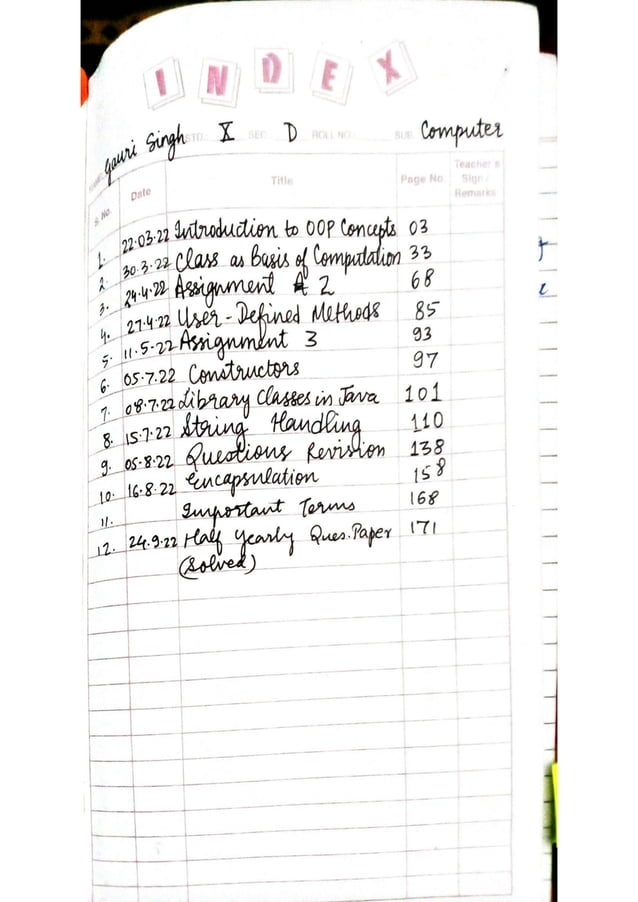 INDEX
NAME: Gauri Singh STD.: X SEC. D ROLL NO. SUB. Computer
S. No. Date Title Page No. Teacher's Sign / Remarks
1. 22.03.22 Introduction to OOP Concepts 03
2. 30.3.22 Class as Basis of Computation 33
3. 24.4.22 Assignment 2 68
4. 27.4.22 User-Defined Methods 85
5. 11.5.22 Assignment 3 93
6. 05.7.22 Constructors 97
7. 08.7.22 Library Classes in Java 101
8. 15.7.22 String Handling 110
9. 05.8.22 Questions Revision 138
10. 16.8.22 Encapsulation 158
11. Important Terms 168
12. 24.9.22 Half Yearly Ques. Paper 171
(Solved)